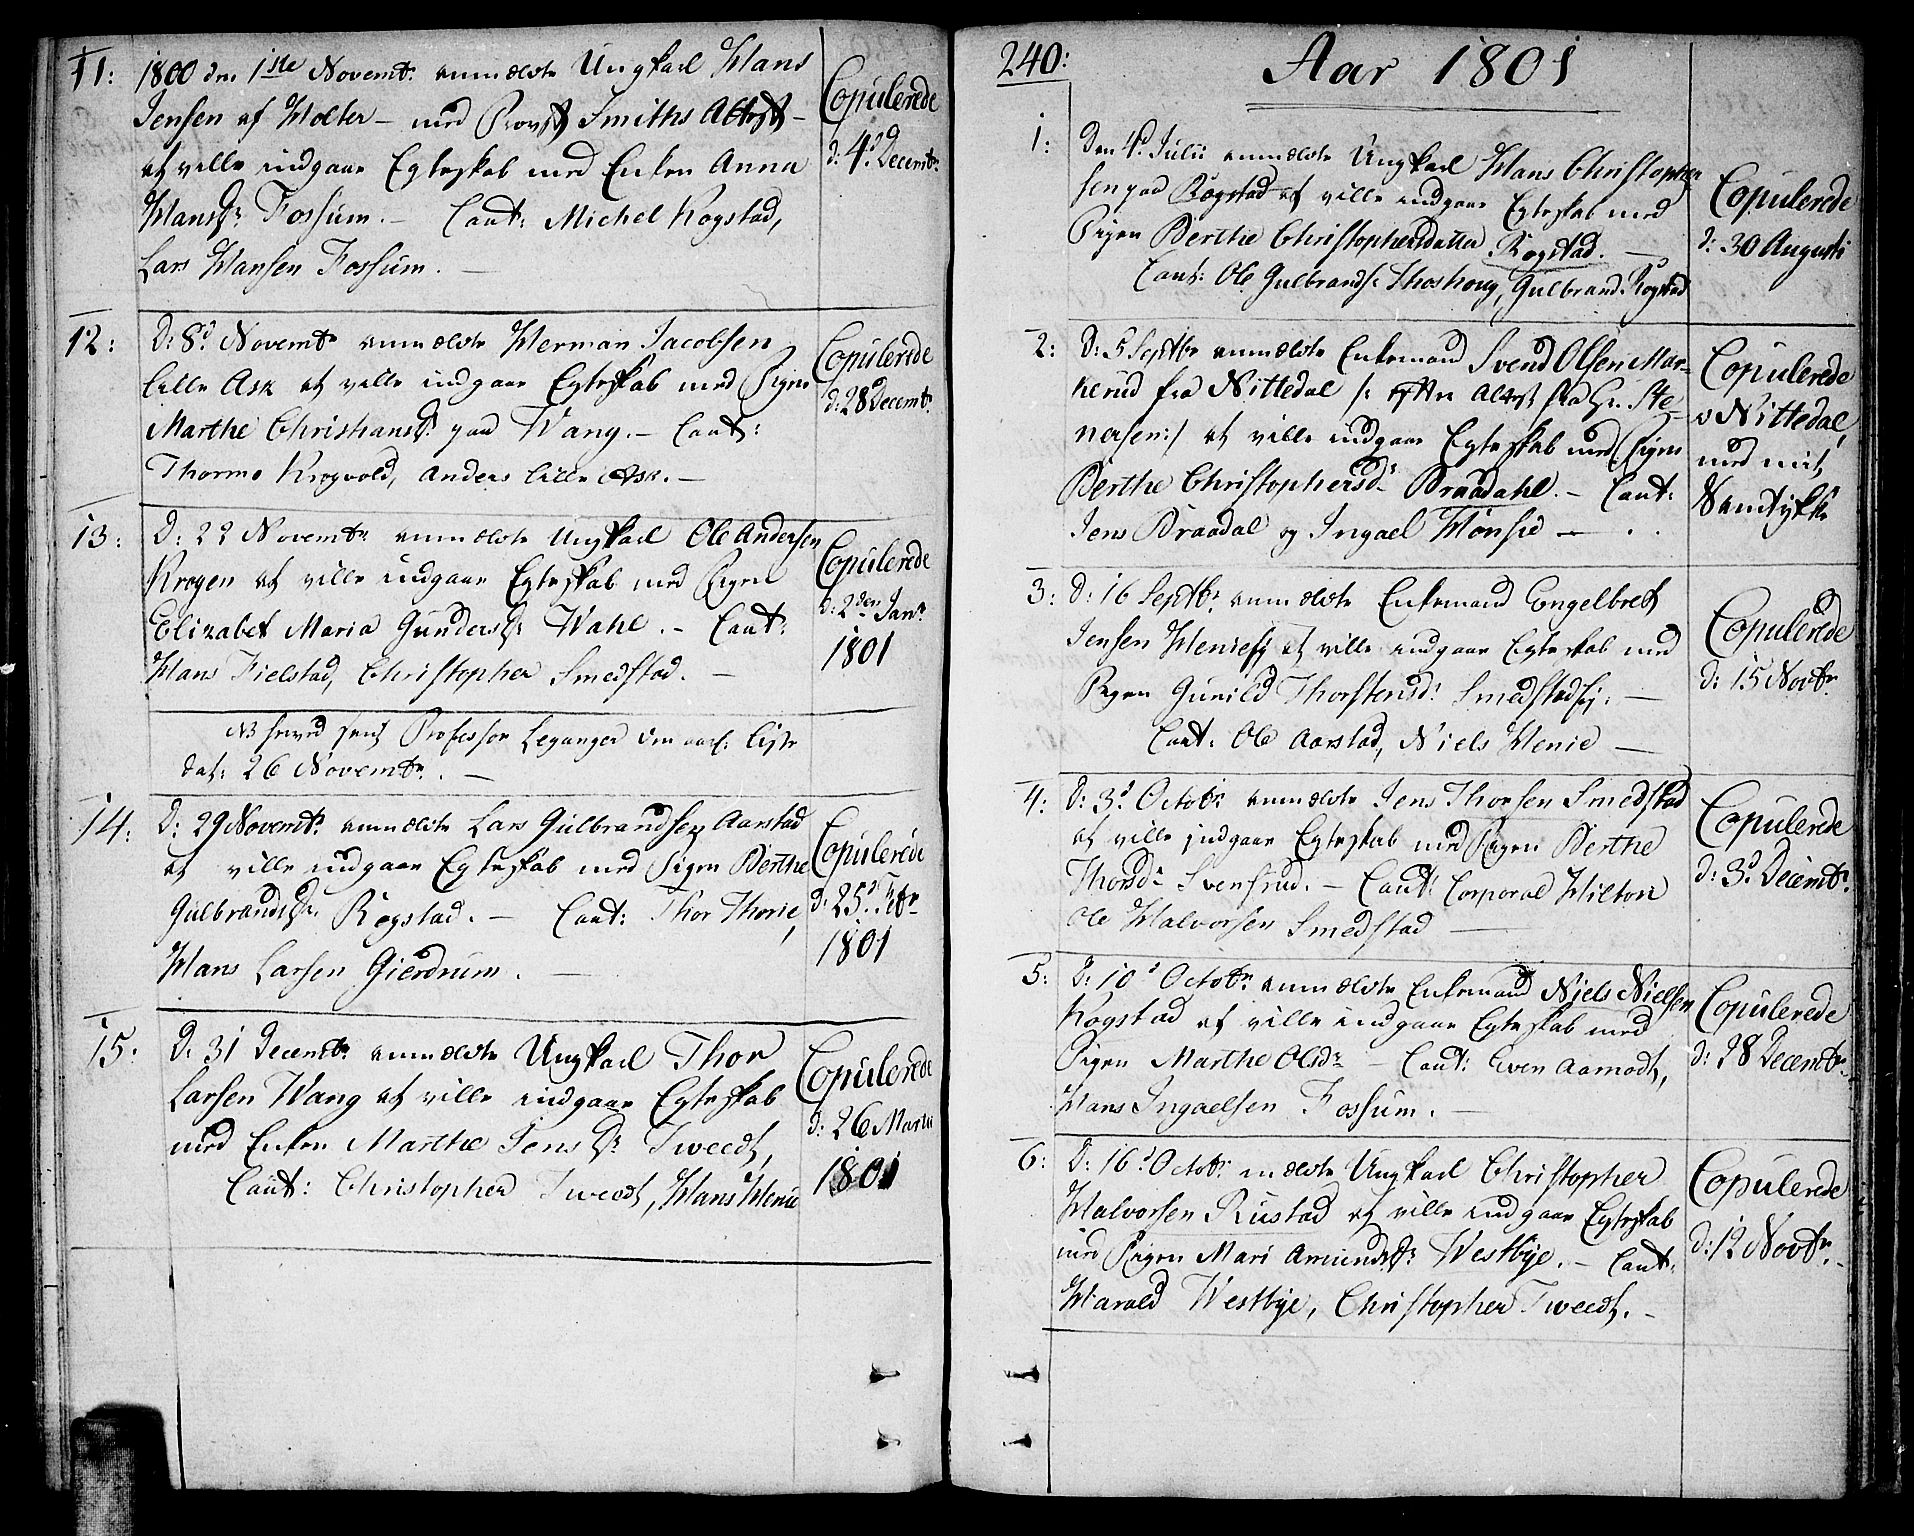 11:
1800 den 1ste Novembr. anmældte Ungkarl Hans
Jensen af Holter – med Provst Smiths Attest –
at ville indgaae Egteskab med Enken Anna
Hansdr. Fossum. – Caut: Michel Kogstad,
Lars Hansen Fossum. –
Copulerede
d: 4d Decembr.
12:
D: 8d Novembr. anmældte Herman Jacobsen
lille Ask at ville indgaae Egteskab med Pigen
Marthe Christiansdr. paa Wang. – Caut:
Thormo Krogvold, Anders lille Ask. –
Copulerede
d: 28 Decembr.
13:
D: 22 Novembr. anmældte Ungkarl Ole Andersen
Krogen at ville indgaae Egteskab med Pigen
Elizabet Maria Gundersdr. Wahl. – Caut:
Hans Fielstad, Christopher Smedstad. –
Copulerede
d: 2den Janr.
1801
NB herved sent Professor Leganger den aarl: Liste
dat: 26 Novembr. –
14:
D: 29 Novembr. anmældte Lars Gulbrandsen Aarstad
at ville indgaae Egteskab med Pigen Berthe
Gulbrandsdr. Rogstad. – Caut: Thor Thorie,
Hans Larsen Gierdrum. –
Copulerede
d: 25d Febr.
1801
15:
D: 31 Decembr. anmældte Ungkarl Thor
Larsen Wang at ville indgaae Egteskab
med Enken Marthe Jensdr. Tweedt,
Caut: Christopher Tweedt, Hans Henie
Copulerede
d: 26 Martii
1801
240:
Aar 1801
1:
Den 4d Julii anmældte Ungkarl Hans Christopher
sen paa Rogstad at ville indgaae Egteskab med
Pigen Berthe Christophersdatter Rogstad. –
Caut: Ole Gulbrands. Skoshoug, Gulbrand. Rogstad
Copulerede
d: 30 Augusti
2:
D: 5 Septbr. anmældte Enkemand Svend Olsen Mar-
kerud fra Nittedal /: efter Attest fra Hr. Ste-
nersen :/ at ville indgaae Egteskab med Pigen
Berthe Christophersdr. Braadahl. – Caut:
Jens Braadal og Ingael Mønsie –
Copulerede
i Nittedal
med mit
Samtykke
3:
D: 16 Septbr. anmældte Enkemand Engelbret
Jensen Henieej at ville indgaae Egteskab med
Pigen Gunild Thorstensdr. Smedstadej: –
Caut: Ole Aarstad, Niels Henie –
Copulerede
d: 15 Novbr.
4:
D: 3d Octobr. anmældte Jens Thorsen Smedstad
at ville indgaae Egteskab med Pigen Berthe
Thorsdr. Svensrud. – Caut: Corporal Hilton
Ole Halvorsen Smedstad –
Copulerede
d: 3d Decembr.
5:
D: 10d Octobr. anmældte Enkemand Niels Nielsen
Kogstad at ville indgaae Egteskab med
Pigen Marthe Olsdr. – Caut: Even Aamodt,
Hans Ingaelsen Fossum. –
Copulerede
d: 28 Decembr.
6:
D: 16d Octobr. mældte Ungkarl Christopher
Halvorsen Rustad at ville indgaae Egteskab
med Pigen Mari Amundsdr. Westbye. – Caut:
Harald Westbye, Christopher Tweedt. –
Copulerede
d: 12 Novbr.